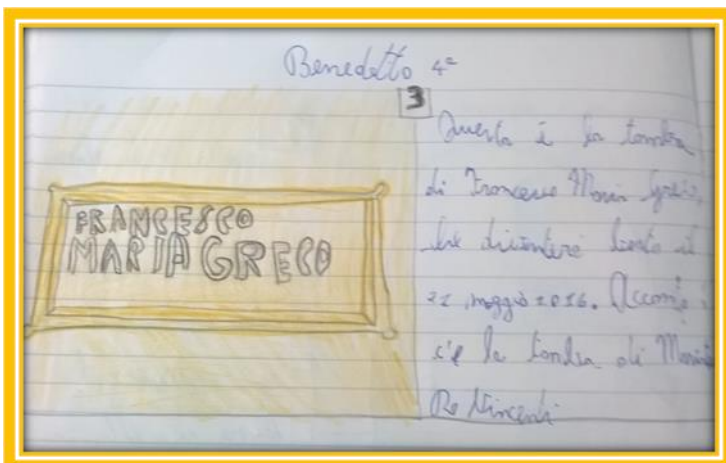 Benedetto 4ª
3
FRANCESCO
MARIA GRECO
Questa è la tomba
di Francesco Maria Greco,
che diventerà beato il
21 maggio 2016. Accanto
c'è la tomba di
De Vincenti